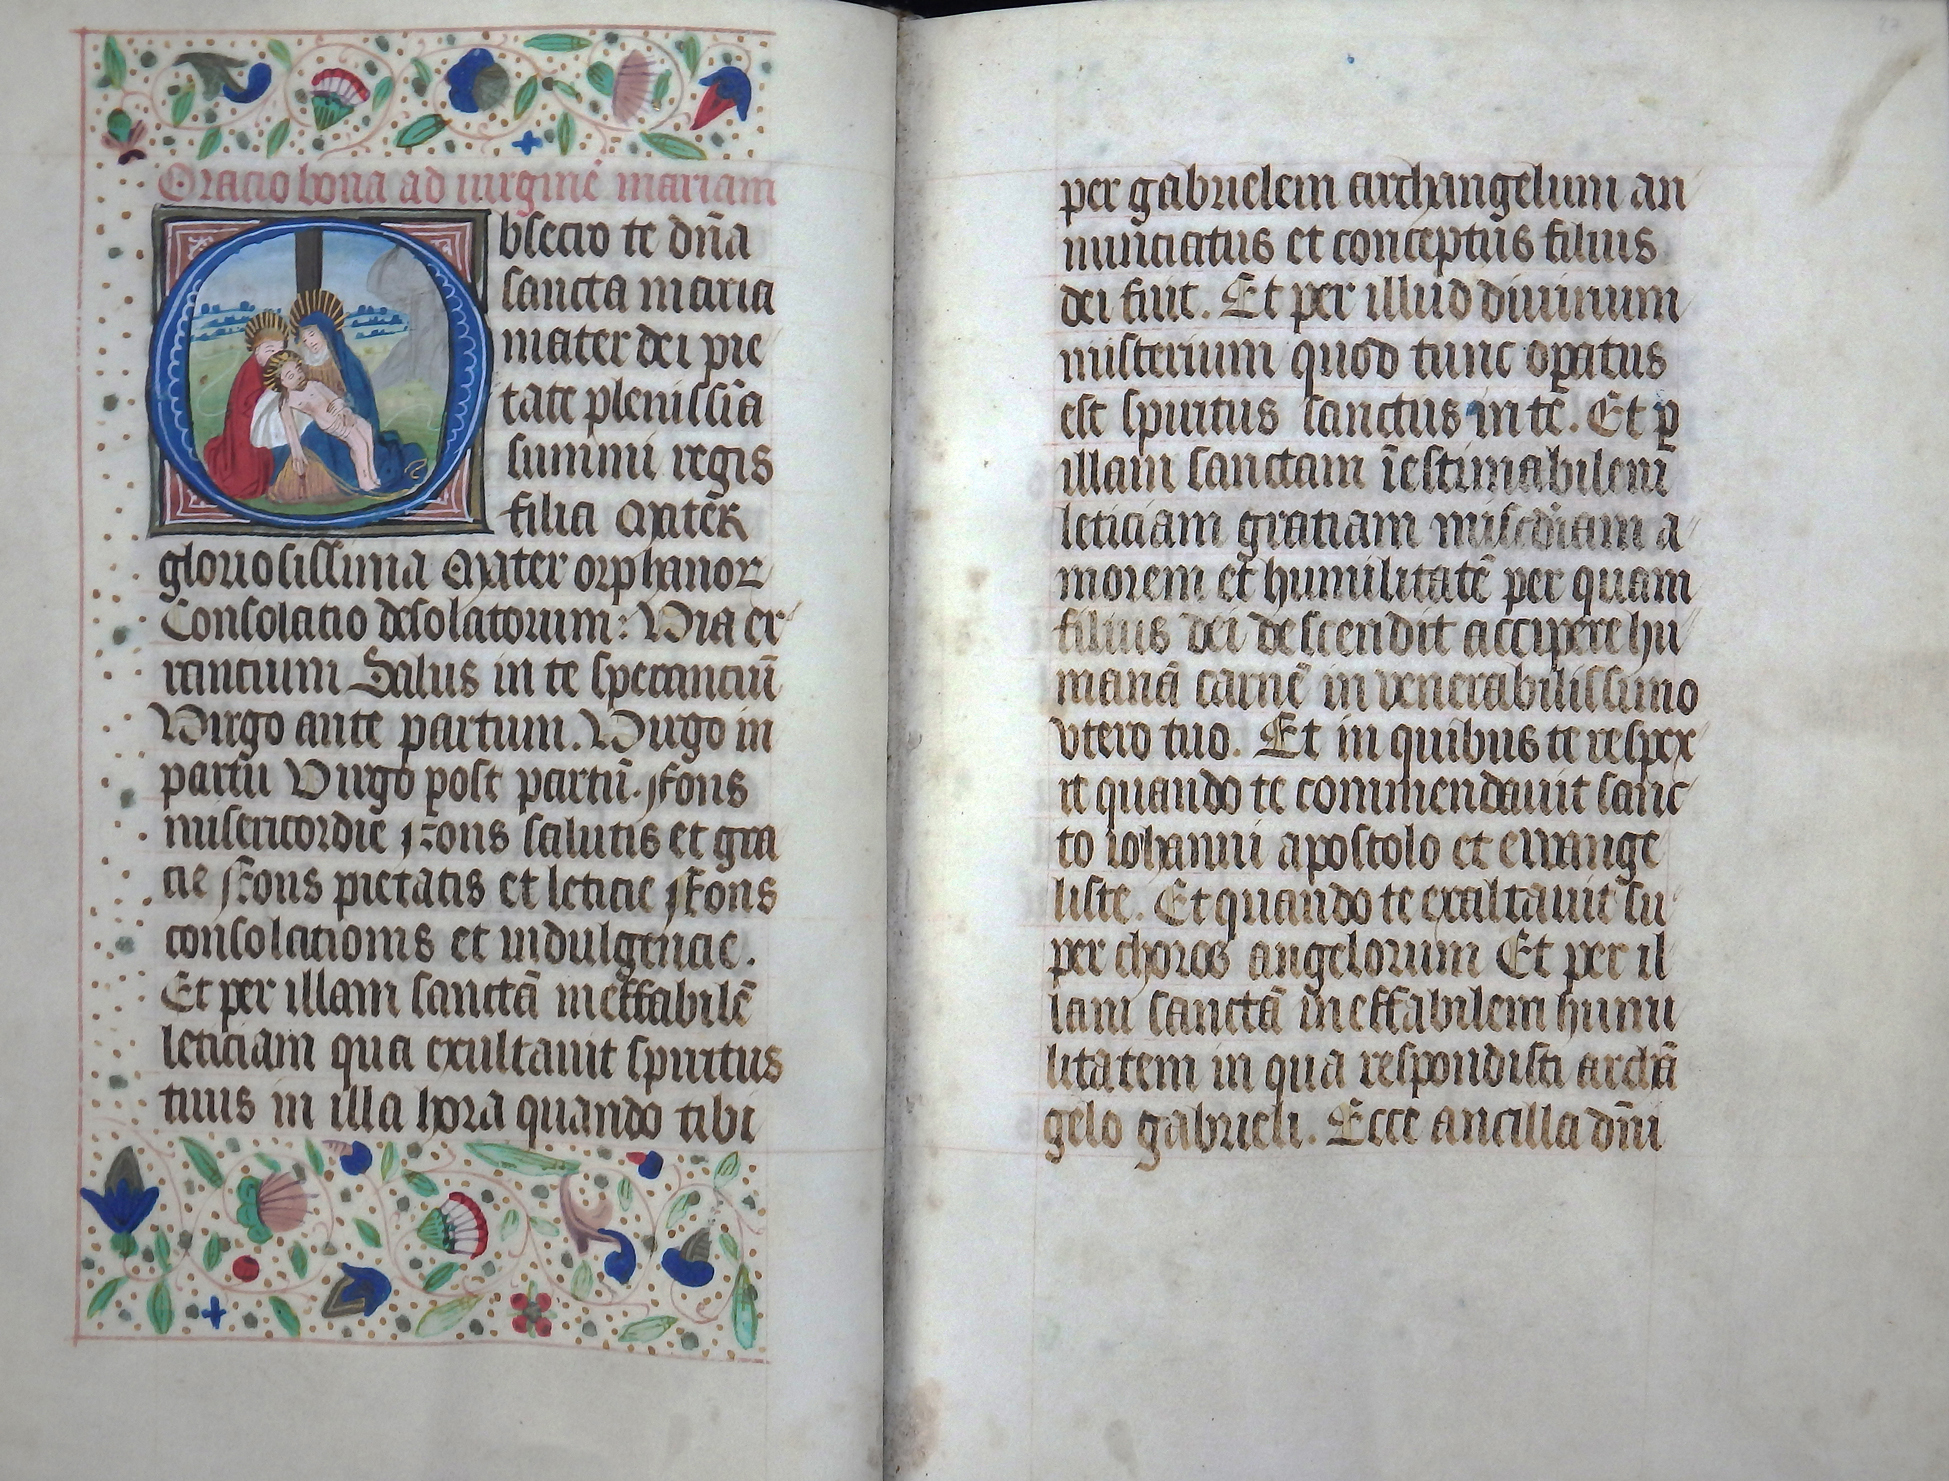 Oracio bona ad uirginē mariam
Obsecro te dn̄a
sancta maria
mater dei pie
tate plenissīa
summi regis
filia Mater
gloriosissima Mater orphanoꝝ
Consolacio desolatorum: Via er
rancium Salus in te speranciū
Virgo ante partum. Virgo in
partu Virgo post partū. Fons
misericordie Fons salutis et gra
cie Fons pietatis et leticie Fons
consolacionis et indulgencie.
Et per illam sanctā ineffabilē
leticiam qua exultauit spiritus
tuus in illa hora quando tibi
per gabrielem archangelum an
nunciatus et conceptus filius
dei fuit. Et per illud diuinum
misterium quod tunc oꝑatus
est spiritus sanctus in te. Et ꝑ
illam sanctam īestimabilem
leticiam gratiam mīscd̄iam a
morem et humilitatē per quam
filius dei descendit accipere hu
manā carnē in venerabilissimo
vtero tuo. Et in quibus te respex
it quando te commendauit sanc
to iohanni apostolo et ewange
liste. Et quando te exaltauit su
per choros angelorum Et per il
lam sanctā ineffabilem humi
litatem in qua respondisti archā
gelo gabrieli. Ecce ancilla dn̄i